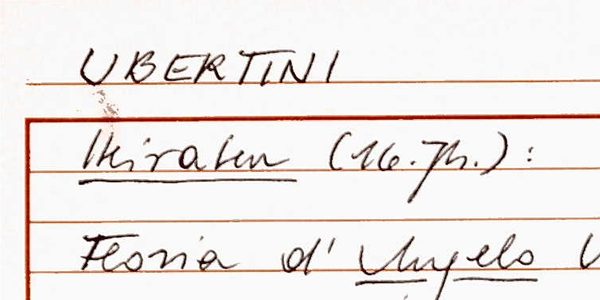 UBERTINI
Heiraten (16. Jh.):
Floria d' Angelo U